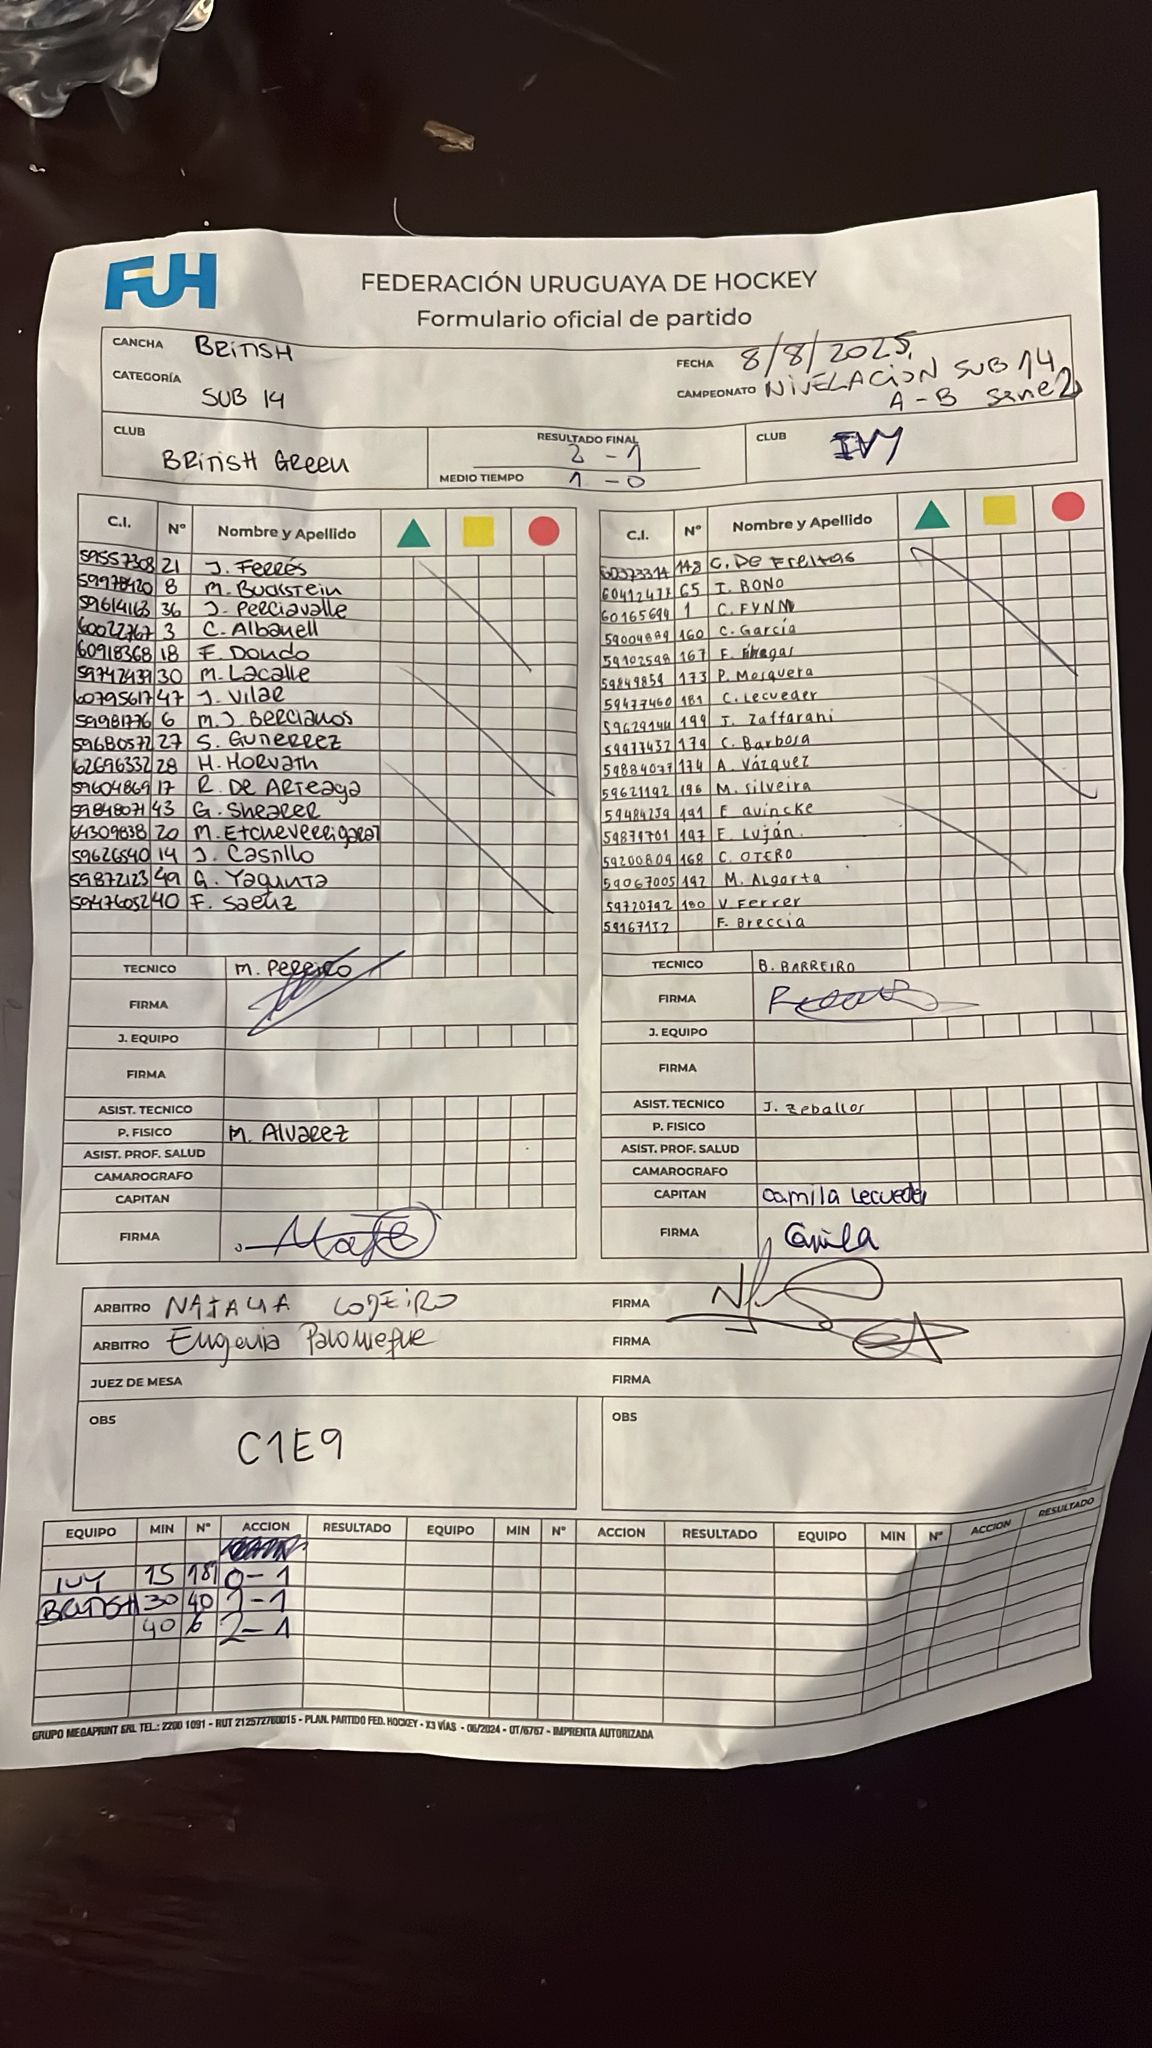 FUH
FEDERACIÓN URUGUAYA DE HOCKEY
Formulario oficial de partido
CANCHA BRITISH
FECHA 8/8/2025
CATEGORÍA SUB 14
CAMPEONATO NIVELACION SUB 14
A-B serie 2
CLUB BRITISH GREEN
RESULTADO FINAL 2-1
MEDIO TIEMPO 1-0
CLUB IVY
C.I. Nº Nombre y Apellido
59557308 21 J. Ferrés
59978420 8 M. Buckstein
59614163 36 J. Perciavalle
60022767 3 C. Albanell
60918368 18 F. Dondo
59742439 30 M. Lacalle
60795617 47 J. Vilar
59981776 6 M.J Bercianos
59680572 27 S. Gutierrez
62696332 28 H. Horvath
59604869 17 R. De Arteaga
59848071 43 G. Shearer
64309838 20 M. Etcheverrigaray
59626540 14 J. Castillo
59872123 49 G. Yaquinta
59476052 40 F. Saenz
TECNICO M. Pereiro
FIRMA
J. EQUIPO
FIRMA
ASIST. TECNICO
P. FISICO M. Alvarez
ASIST. PROF. SALUD
CAMAROGRAFO
CAPITAN
FIRMA
C.I. Nº Nombre y Apellido
60373314 148 C. De Freitas
60412477 65 I. BONO
60165694 1 C. FYNN
59004889 160 C. García
59102598 167 F.
59849859 173 P. Mosquera
59477460 181 C. Lecueder
59629144 199 J. Zaffarani
59977432 179 C. Barbosa
59884037 174 A. Vázquez
59621192 196 M. Silveira
59484239 191 F. Quincke
59879701 197 F. Luján
59200809 168 C. OTERO
59067005 192 M. Algorta
59720792 180 V. Ferrer
59167132 F. Breccia
TECNICO B. BARREIRO
FIRMA
J. EQUIPO
FIRMA
ASIST. TECNICO J. Zeballos
P. FISICO
ASIST. PROF. SALUD
CAMAROGRAFO
CAPITAN Camila Lecueder
FIRMA Camila
ARBITRO NATALIA COJEIRO FIRMA
ARBITRO Eugenia Palomeque FIRMA
JUEZ DE MESA FIRMA
OBS C1E9
OBS
EQUIPO MIN Nº ACCION RESULTADO EQUIPO MIN Nº ACCION RESULTADO EQUIPO MIN Nº ACCION RESULTADO
IVY 15 181 0-1
BRITISH 30 40 1-1
40 6 2-1
GRUPO MEGAPRINT SRL TEL.: 2200 1091 - RUT 212572760015 - PLAN. PARTIDO FED. HOCKEY - X3 VÍAS - 06/2024 - OT/6767 - IMPRENTA AUTORIZADA